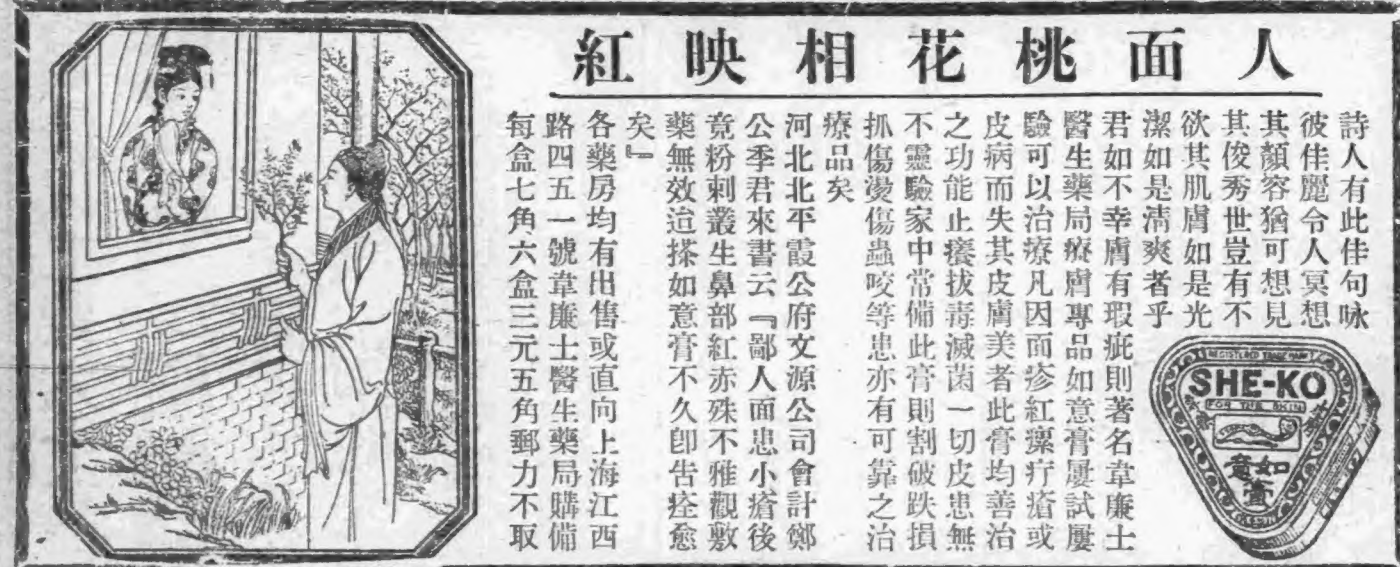 人面桃花相映紅
詩人有此佳句咏
彼佳麗令人冥想
其顏容猶可想見
其俊秀世豈有不
欲其肌膚如是光
潔如是清爽者乎
君如不幸膚有瑕疵則著名韋廉士
醫生藥局療膚專品如意膏屢試屢
驗可以治療凡因面疹紅瘰疔瘡或
皮病而失其皮膚美者此膏均善治
之功能止癢拔毒滅菌一切皮患無
不靈驗家中常備此膏則割破跌損
抓傷燙傷蟲咬等患亦有可靠之治
療品矣
河北北平霞公府文源公司會計鄭
公季君來書云『鄙人面患小瘡後
竟粉刺叢生鼻部紅赤殊不雅觀敷
藥無效迨搽如意膏不久卽告痊愈
矣』
各藥房均有出售或直向上海江西
路四五一號韋廉士醫生藥局購備
每盒七角六盒三元五角郵力不取
REGISTERED TRADE MARK
SHE-KO
FOR THE SKIN
如意膏